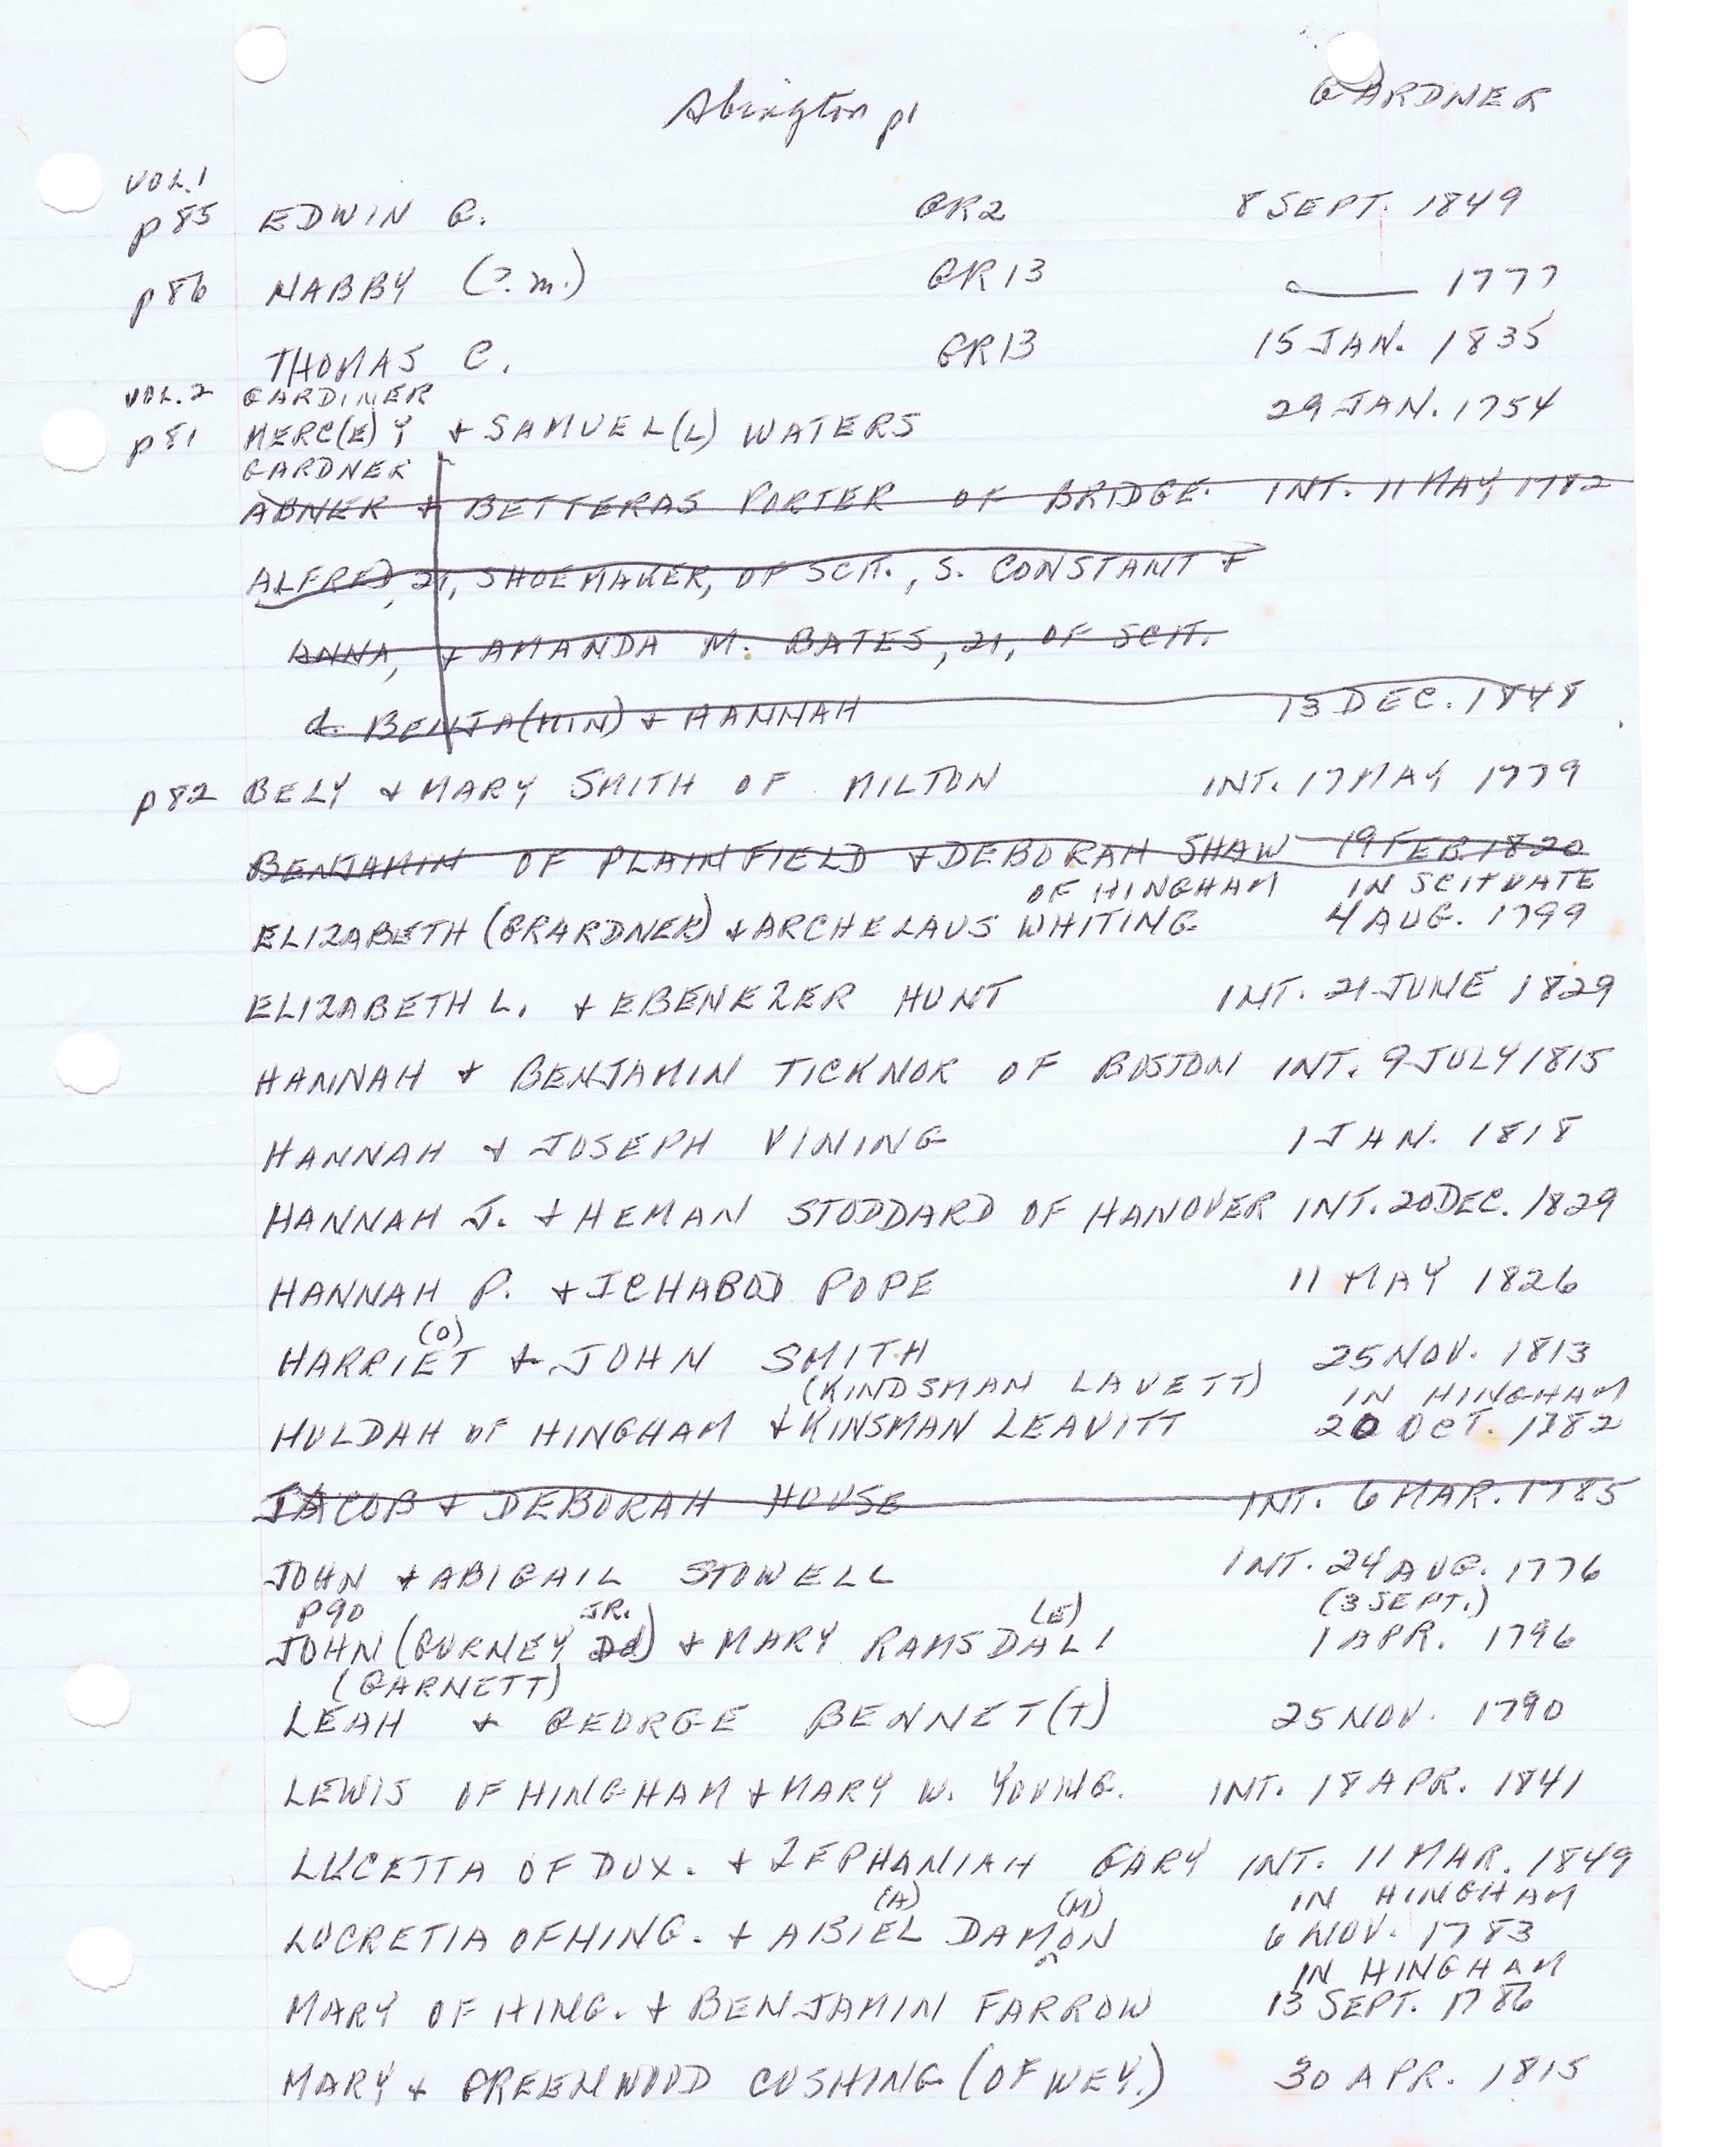 Abington p1 GARDNER
VOL.1
p85 EDWIN G. GR2 8 SEPT. 1849
p86 NABBY (?.m.) GR13 —— 1777
THOMAS C. GR13 15 JAN. 1835
VOL.2 GARDINER
p81 MERC(E)Y + SAMUEL(L) WATERS 29 JAN. 1754
GARDNER
ABNER + BETTERAS PORTER OF BRIDGE. INT. 11 MAY 1782
ALFRED, 21, SHOEMAKER, OF SCIT., S. CONSTANT +
ANNA, + AMANDA M. BATES, 21, OF SCIT.
d. BENJA(MIN) + HANNAH 13 DEC. 1848
p82 BELY + MARY SMITH OF MILTON INT. 17 MAY 1779
BENJAMIN OF PLAINFIELD + DEBORAH SHAW 19 FEB 1820
OF HINGHAM IN SCITUATE
ELIZABETH (GRARDNER) + ARCHELAUS WHITING 4 AUG. 1799
ELIZABETH L. + EBENEZER HUNT INT. 21 JUNE 1829
HANNAH + BENJAMIN TICKNOR OF BOSTON INT. 9 JULY 1815
HANNAH + JOSEPH VINING 1 JAN. 1818
HANNAH J. + HEMAN STODDARD OF HANOVER INT. 20 DEC. 1829
HANNAH P. + ICHABOD POPE 11 MAY 1826
(O)
HARRIET + JOHN SMITH 25 NOV. 1813
(KINDSMAN LAVETT) IN HINGHAM
HULDAH OF HINGHAM + KINSMAN LEAVITT 20 OCT. 1782
JACOB + DEBORAH HOUSE INT. 6 MAR. 1785
JOHN + ABIGAIL STOWELL INT. 24 AUG. 1776
P90 JR. (E) (3 SEPT.)
JOHN (GURNEY) + MARY RAMSDALL 1 APR. 1796
(GARNETT)
LEAH + GEORGE BENNET(T) 25 NOV. 1790
LEWIS OF HINGHAM + MARY W. YOUNG. INT. 18 APR. 1841
LUCETTA OF DUX. + ZEPHANIAH GARY INT. 11 MAR. 1849
(A) (M) IN HINGHAM
LUCRETIA OF HING. + ABIEL DAMON 6 NOV. 1783
IN HINGHAM
MARY OF HING. + BENJAMIN FARROW 13 SEPT. 1786
MARY + GREENWOOD CUSHING (OF WEY.) 30 APR. 1815